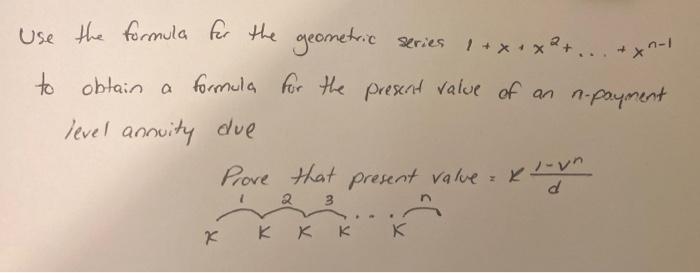 Use the formula for the geometric series 1 + x + x² + ... + xⁿ⁻¹
to obtain a formula for the present value of an n-payment
level annuity due
Prove that present value = K 1-vⁿ / d
1 2 3 n
K K K K ... K